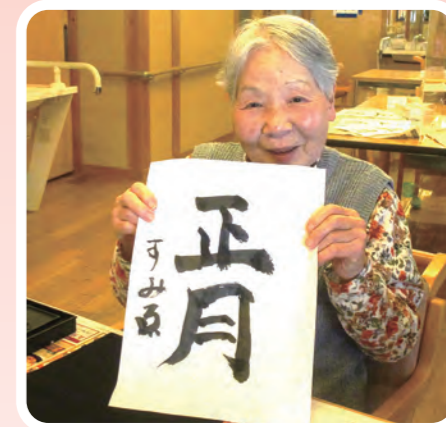 正月
すみ京